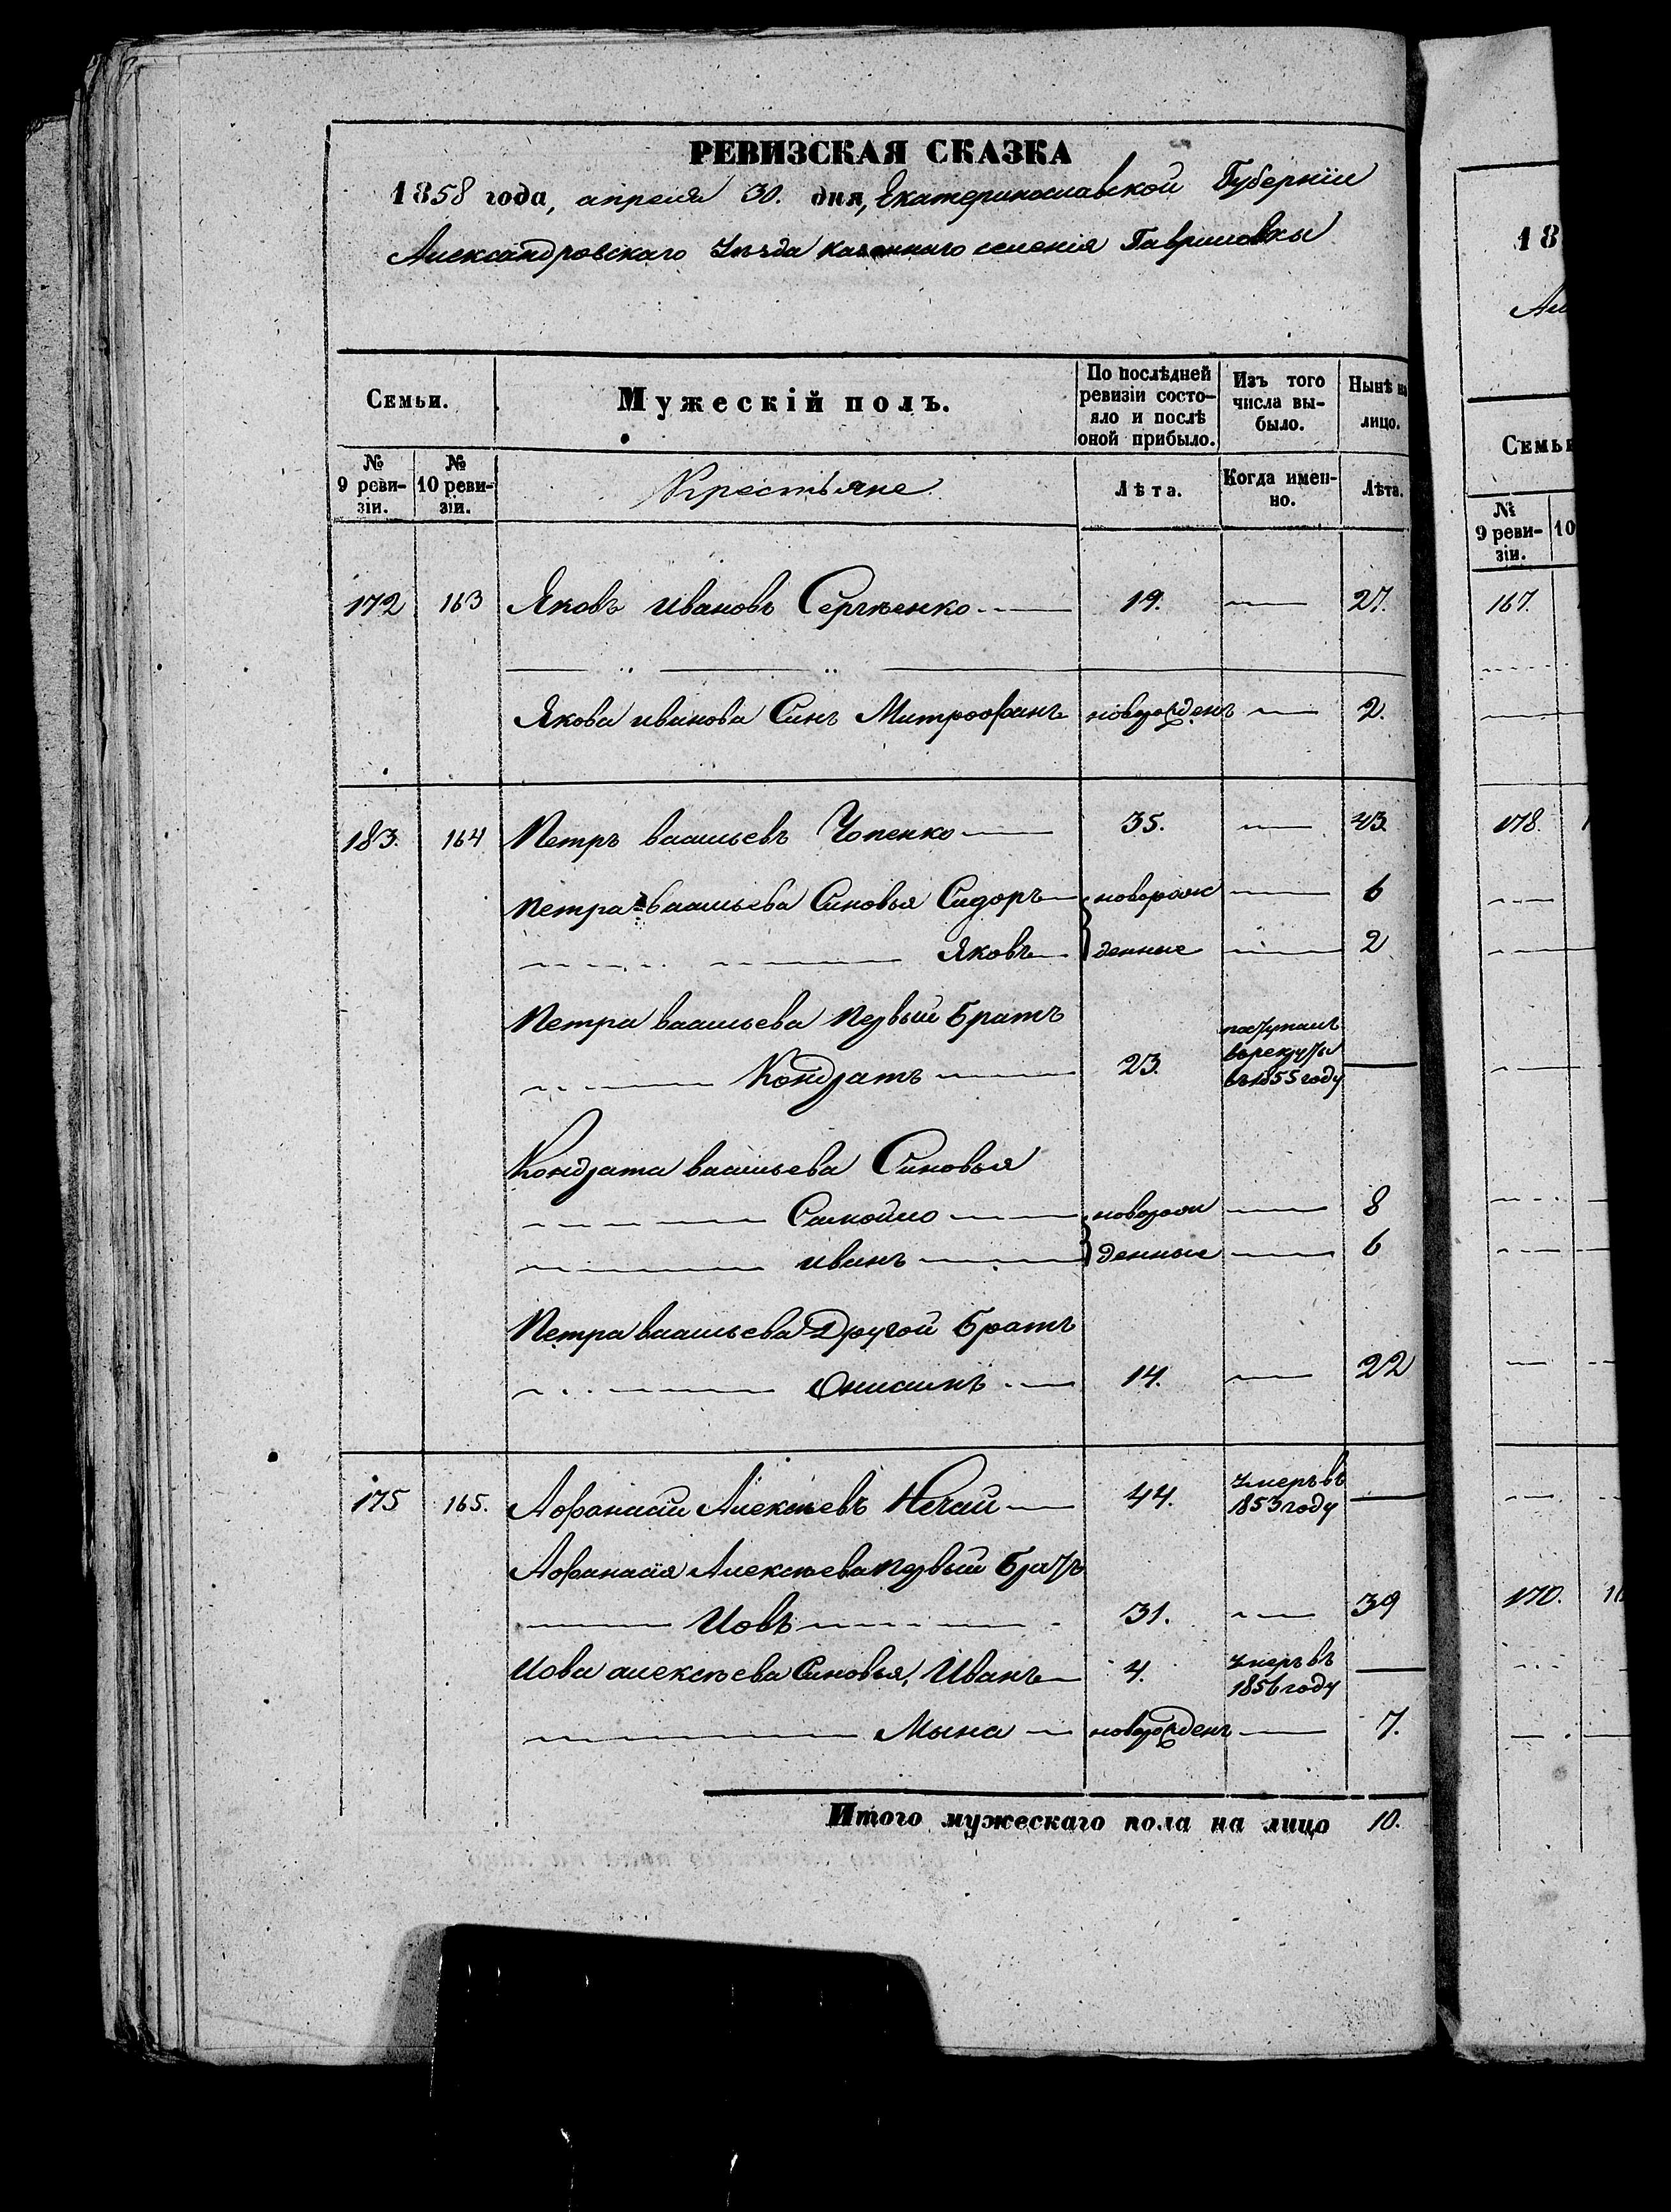 РЕВИЗСКАЯ СКАЗКА
1858 года, апреля 30. дня, Екатеринославской Губернїи
Александровскаго Уѣзда казеннаго селенія Гавриловки
Семьи. Мужескій полъ. По послѣдней ревизіи состо- яло и послѣ оной прибыло. Изъ того числа вы- было. Нынѣ на лицо.
№ 9 реви- зіи. № 10 реви- зіи. Крестьяне Лѣта. Когда имен- но. Лѣта.
172 163 Яковъ ивановъ Сергѣенко 19. 27.
Якова иванова Синъ Митрофанъ новорожденъ 2.
183. 164 Петръ васильевъ Чопенко 35. 43
Петра васильева Синовья Сидоръ новорож 6
Яковъ денные 2
Петра васильева первый братъ
Кондратъ 23. поступилъ в рекруты въ 1855 году
Кондрата васильева Синовья
Самойло новорож 8
иванъ денные 6
Петра васильева Другой братъ
Онисимъ 14. 22
175 165. Афанасий Алексѣевъ Нечай 44. Умеръ въ 1853 году
Афанасїя Алексѣева первый братъ
Иовъ 31. 39
Иова алексѣева Синовья, Иванъ 4. Умеръ въ 1856 году
Мына новорожденъ 7.
Итого мужескаго пола на лицо 10.
18
Ал
Семьи
№ 9 реви- зіи. 10
167.
178.
170. 16